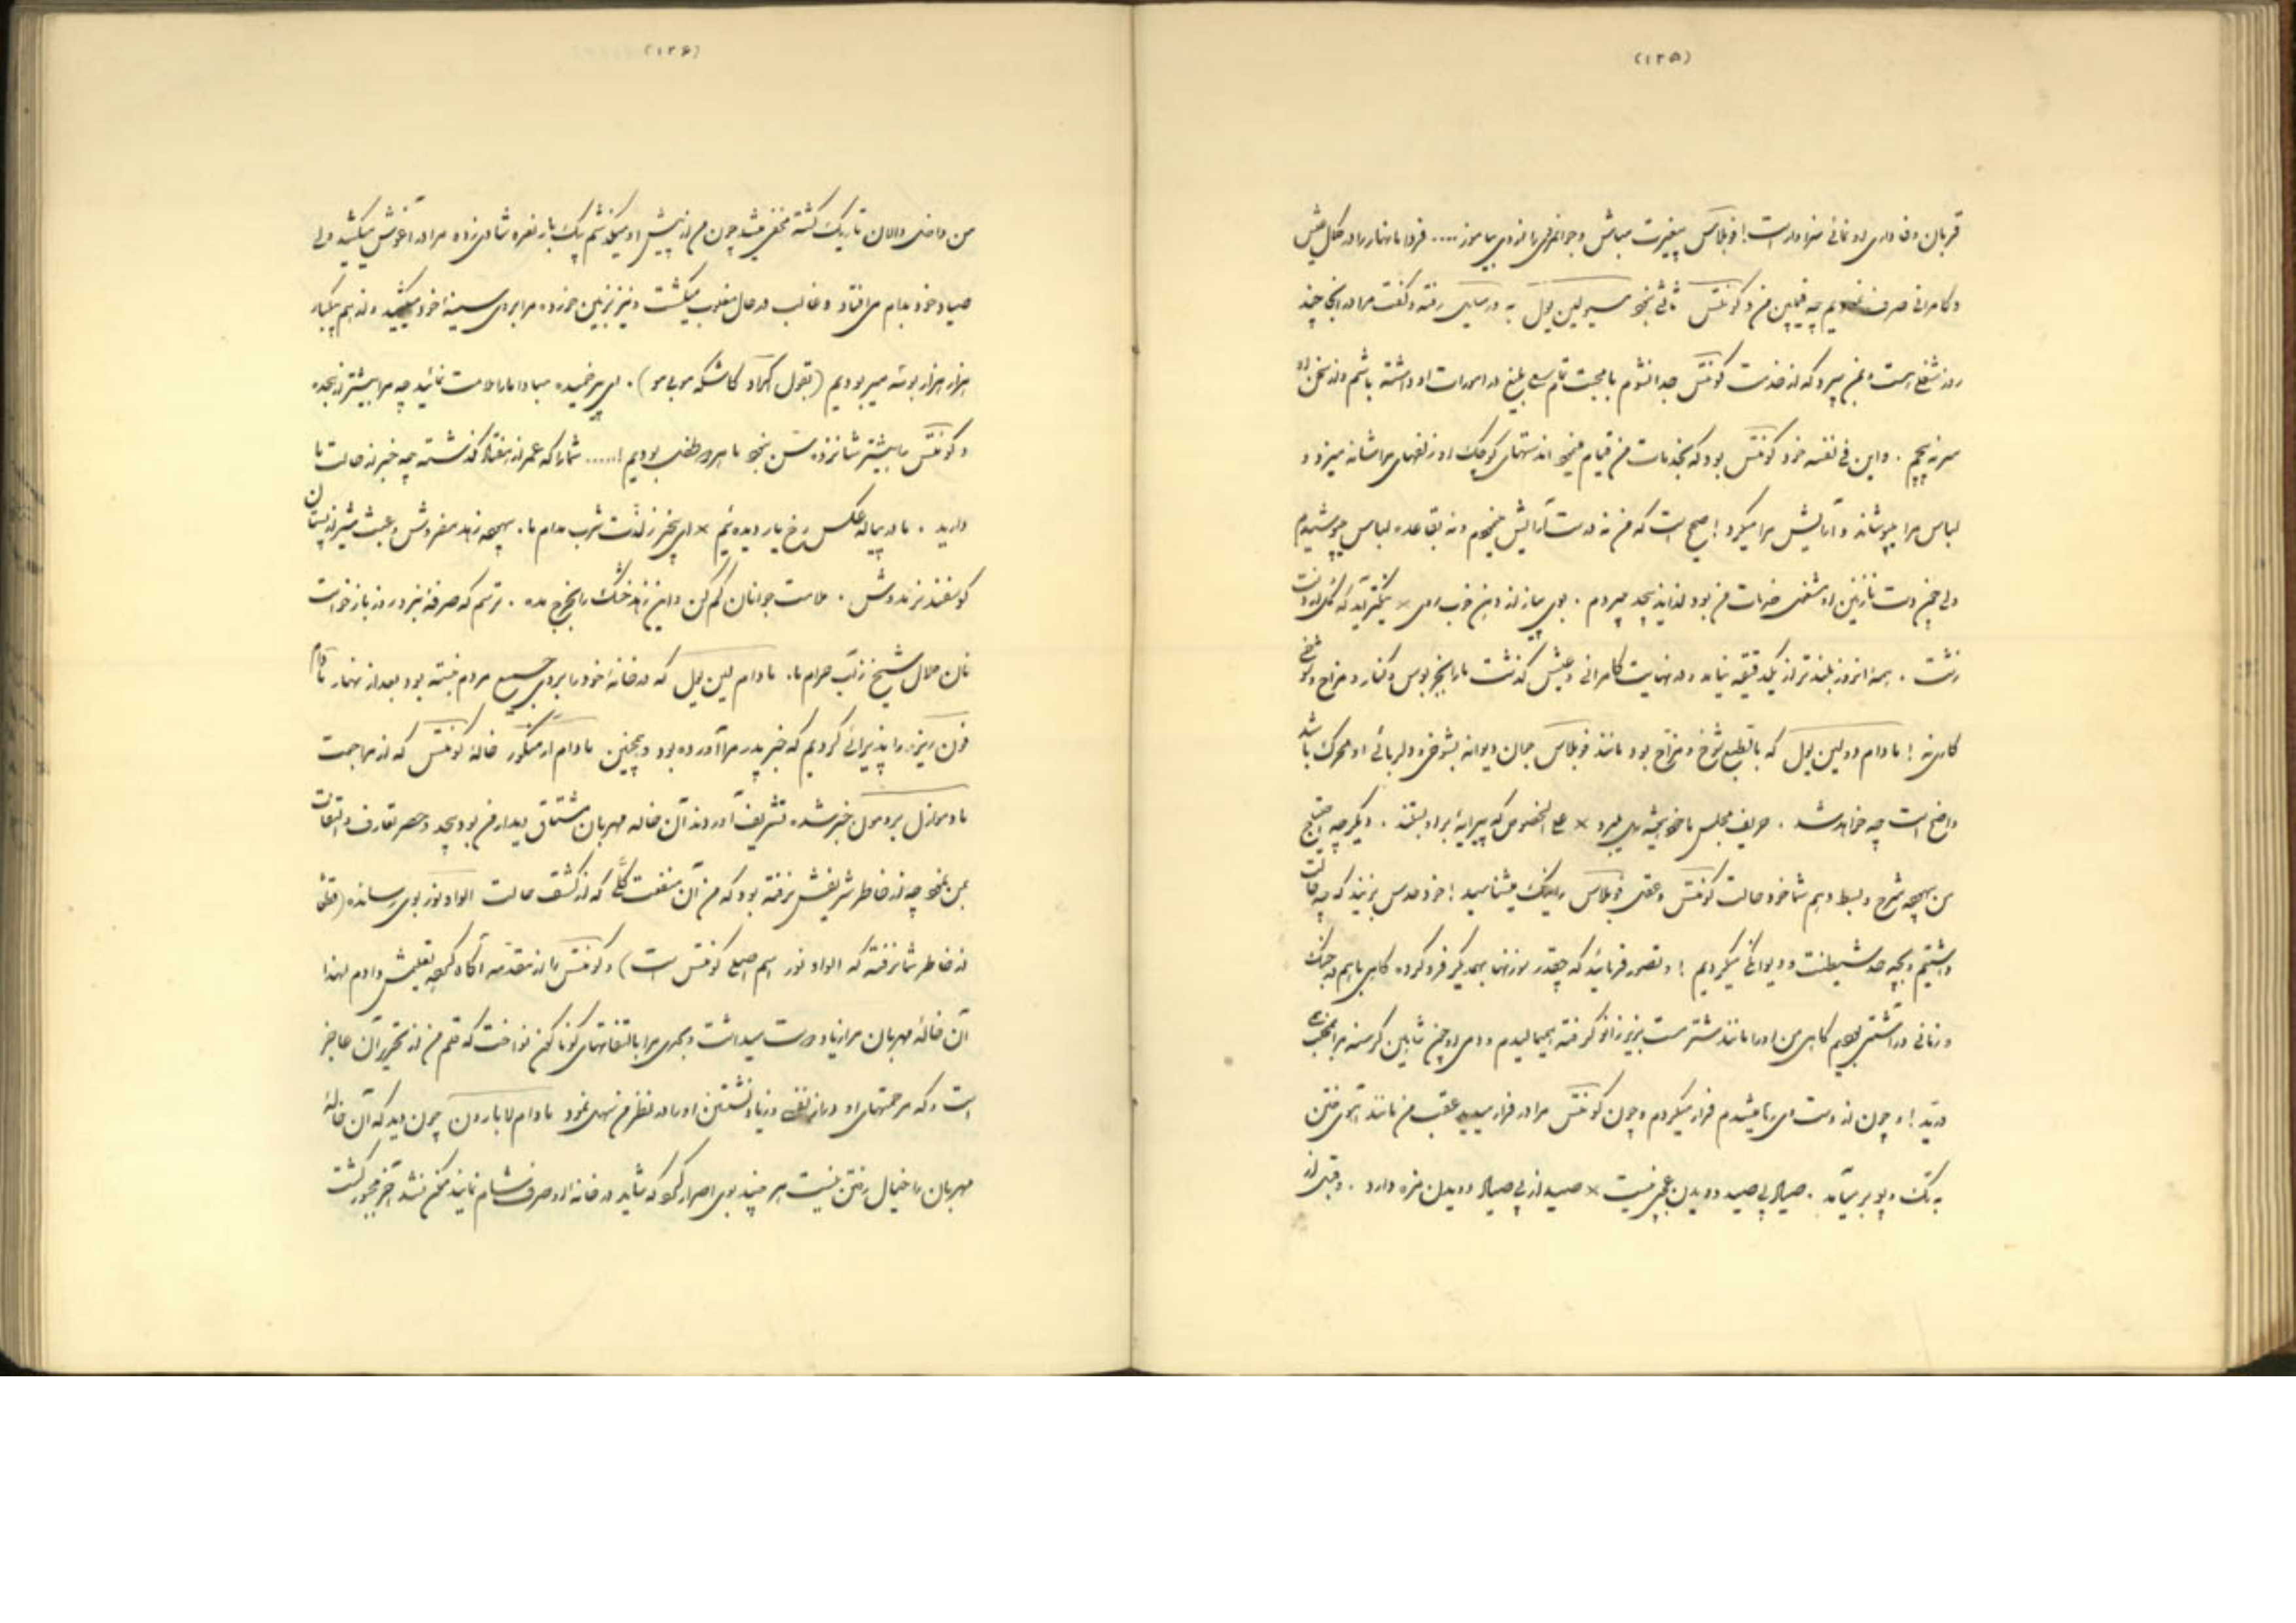 (۱۲۵)
قربان وفاداری او نمائی سزاوار است! فوبلاس بیغیرت مباش و جوانمردی را از وی بیاموز..... فردا ما نهار را در کمال عیش
و کامرانی صرف نمودیم چه فیلیپن من و کونتس ثانی بنحو مسیو لین یول به ورسای رفته و گفت مرا در آنجا چند
روز شغلی است و بمن سپرد که از خدمت کونتس جدا نشوم با محبت تام سعی بلیغ در امورات او داشته باشم و از سخن او
سر نه پیچم . و این فی نفسه خود کونتس بود که بخدمات من قیام مینمود اندستهای کوچک او زلفهای مرا شانه میزد و
لباس مرا میپوشاند و آرایش مرا میکرد! صحیح است که من نه درست آرایش میشدم و نه بقاعده لباس میپوشیدم
ولی چون دست نازنین او مشغول خدمات من بود لذایذ بیحد میبردم . بوی پیاز از دهن خوب روی × نیکتر آید که گل از دست
زشت . همهٔ آنروز بلندتر از یکدقیقه نیامد و در نهایت کامرانی و عیش گذشت ما را بجز بوس و کنار و مزاح و شوخی
کاری نه! مادام دولین یول که بالطبع شوخ و مزاح بود مانند فوبلاس جوان دیوانه بشوخی و دلربائی او محرک باشد
واضح است چه خواهد شد . حریف مجلس ما خود همیشه دل میبرد × علی الخصوص که پیرایهٔ بر او بستند . دیگر چه احتیاج
من بهیچه شرح و بسط دهم شما خود حالت کونتس و عقل فوبلاس را نیک میشناسید! خود حدس بزنید که چه حالت
داشتیم و بچه حد شیطنت و دیوانگی میکردیم! و تصور فرمائید که چقدر سوزنها بهمدیگر فرو کرده گاهی با هم در جنگ
و زمانی در آشتی بودیم گاهی من او را مانند شتر مست بزیر زانو گرفته میمالیدم و دمی او چون شاهین گرسنه مرا بچنگ
دریدی! و چون از دست وی رها میشدم فرار میکردم و چون کونتس مرا در فرار میدید عقب من مانند آهوی ختن
به تک و پو بر میآمد . صیاد پی صید دویدن عجبی نیست × صید از پی صیاد دویدن مزه دارد . وقتی از
(۱۲۶)
من داخل دالان تاریک گشته مخفی میشد چون من از پیش او میگذشتم یک بار نعره شادی زده مرا در آغوش میکشید ولی
صیاد خود بدام می افتاد و غالب در حال مغلوب میگشت و نیز بزمین خورده مرا بروی سینهٔ خود میکشید و از هم یکبار
هزار هزار بوسه میربودیم (بقول اکراد کاشکه موبی مو) . ای پیر خمیده مبادا ما را ملامت نمائید چه مرا بیشتر از هجده
و کونتس را بیشتر شانزده سن نبود ما هر دو طفل بودیم!..... شما را که عمر از هفتاد گذشته چه خبر از حالت ما
دارید . ما در پیاله عکس رخ یار دیده ایم × ای بیخبر ز لذت شرب مدام ما . بهیچ زهد مفروش و عبث شیر از پستان
گوسفند نر ندوش . ملامت جوانان کم کن و این زهد خشک را بخرج مده . ترسم که صرفهٔ نبرد روز بازخواست
نان حلال شیخ ز آب حرام ما. مادام لین یول که در خانهٔ خود را بروی جمیع مردم بسته بود بعد از نهار مادام
فون ریزر را پذیرائی کردیم که خبر پدر مرا آورده بود و همچنین مادام ارمنکور خالهٔ کونتس که از مراجعت
مادموازل برومون خبر شده تشریف آوردند آن خاله مهربان مشتاق دیدار من بود بیحد و حصر تعارف و التفات
بمن نمود چه از خاطر شریفش نرفته بود که من آن منفعت کلی که از کشف حالت الوادنور بوی رسانده (قطعا
از خاطر شما نرفته که الوادنور اسم اصلی کونتس است) و کونتس را از مقدمه آگاه کرده تعلیمش دادم لهذا
آن خالهٔ مهربان مرا زیاد دوست میداشت و بحدی مرا بالتفاتهای گوناگون نواخت که قلم من از تحریر آن عاجز
است و که مرحمتهای او و زیاد نشستن او را در نظر من نمود مادام لابارون چون دید که آن خالهٔ
مهربان را خیال رفتن نیست هر چند بوی اصرار کرد که شاید در خانه او صرف شام نمایند ممکن نشد آخر مجبور گشت